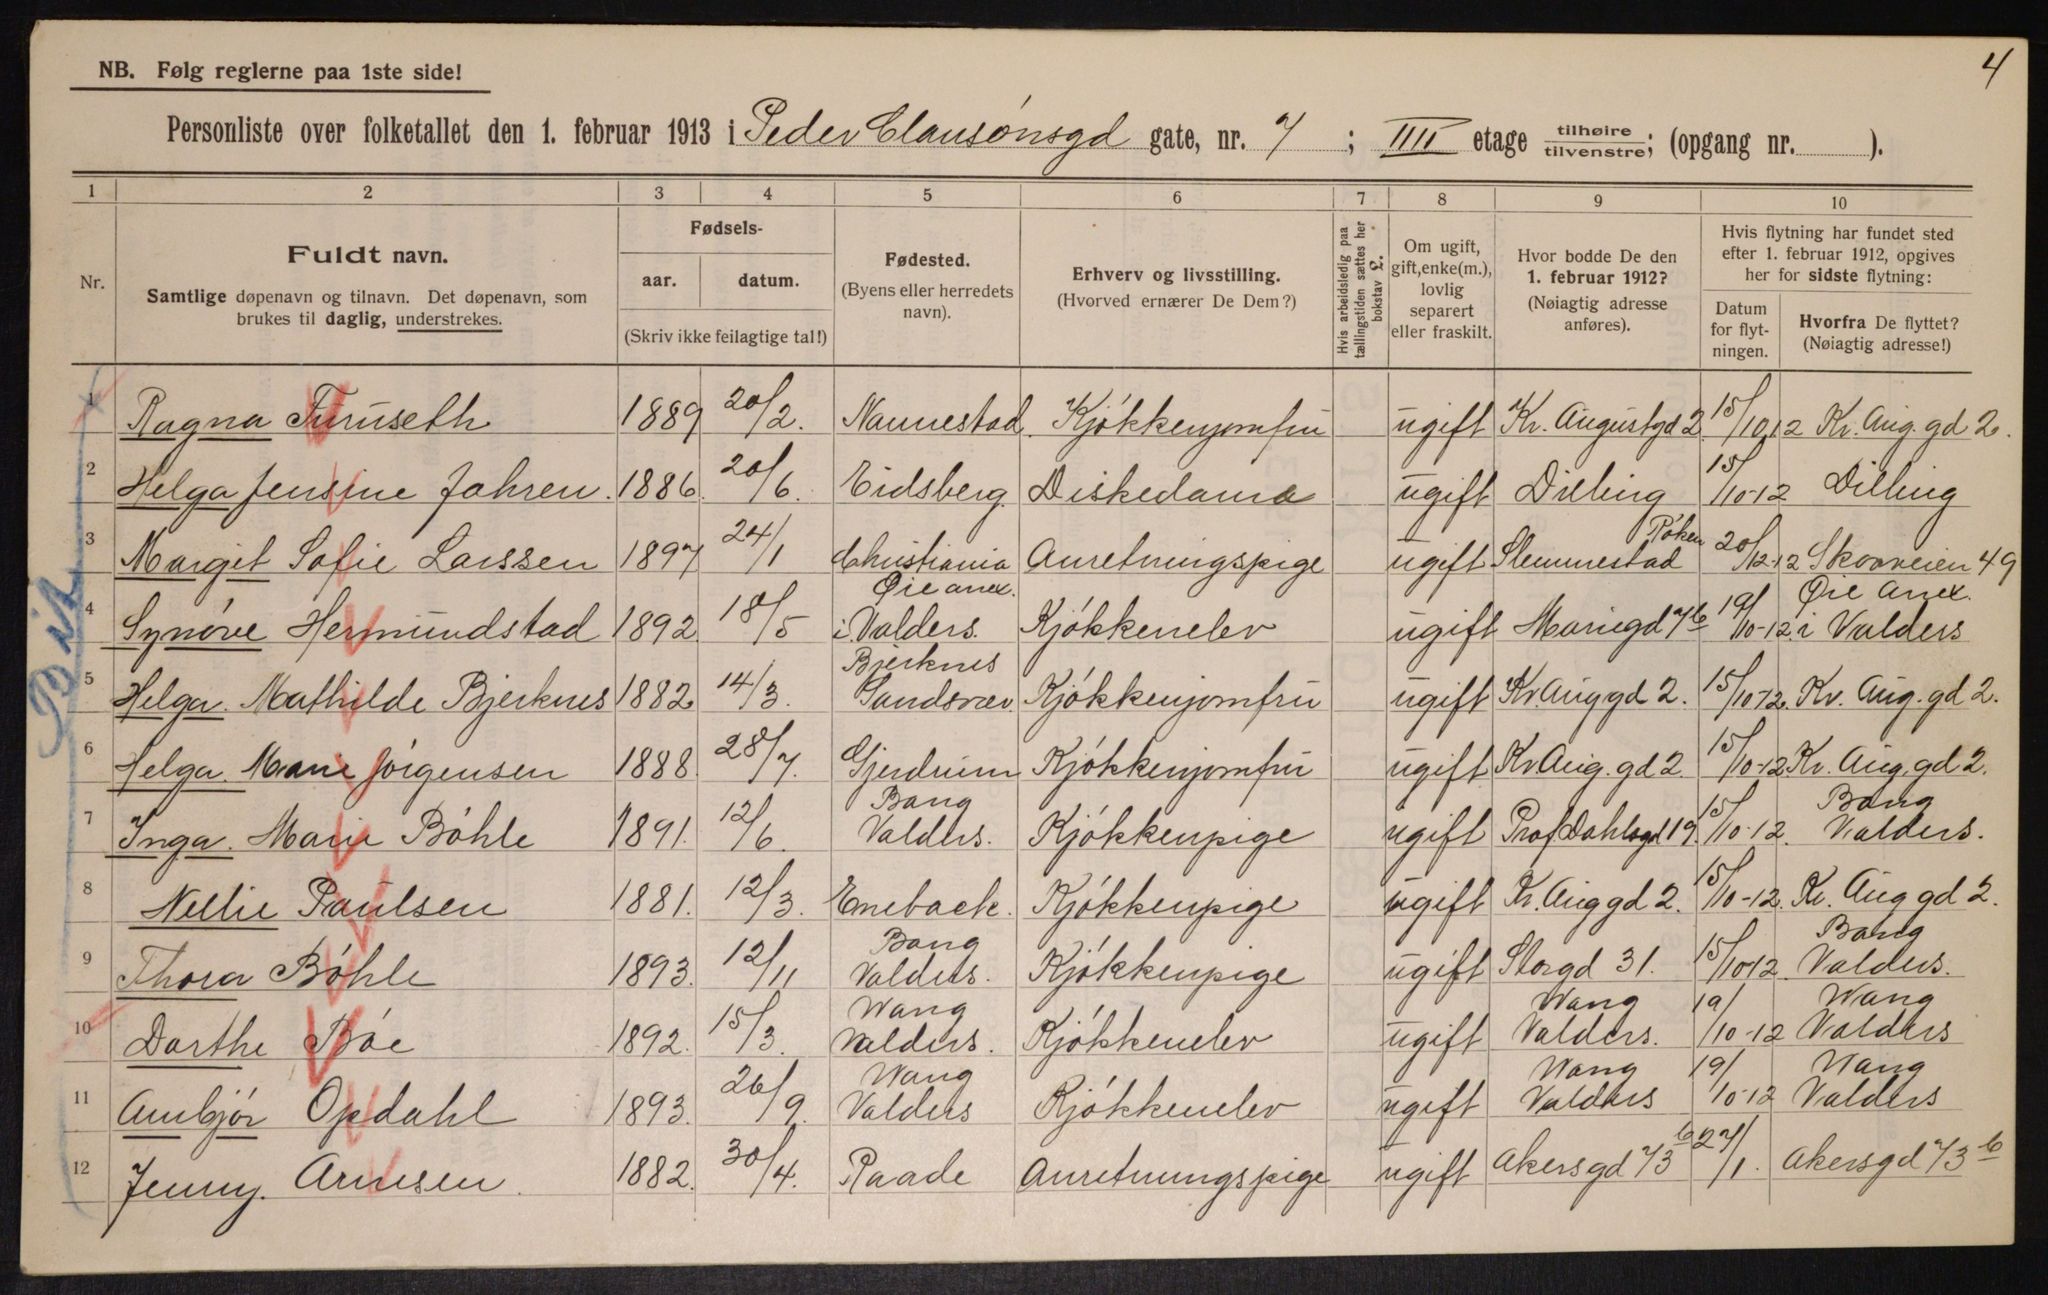 4
NB. Følg reglerne paa 1ste side!
Personliste over folketallet den 1. februar 1913 i Peder Clausönsgd gate, nr. 7 ; IIII etage tilhøire tilvenstre; (opgang nr. ).
1 2 3 4 5 6 7 8 9 10
Nr.
Fuldt navn.
Samtlige døpenavn og tilnavn. Det døpenavn, som
brukes til daglig, understrekes.
Fødsels-
aar. datum.
(Skriv ikke feilagtige tal!)
Fødested.
(Byens eller herredets
navn).
Erhverv og livsstilling.
(Hvorved ernærer De Dem?)
Hvis arbeidsledig paa
tællingstiden sættes her
bokstav L.
Om ugift,
gift, enke(m.),
lovlig
separert
eller fraskilt.
Hvor bodde De den
1. februar 1912?
(Nøiagtig adresse
anføres).
Hvis flytning har fundet sted
efter 1. februar 1912, opgives
her for sidste flytning:
Datum
for flyt-
ningen.
Hvorfra De flyttet?
(Nøiagtig adresse!)
1 Ragna Furuseth 1889 20/2. Nannestad. Kjökkenjomfru ugift Kr. Augustgd 2. 15/10.12 Kr. Aug. gd 2.
2 Helga Jensine Jahren. 1886. 20/6. Eidsberg. Diskedama ugift Dilling 15/10-12 Dilling
3 Margit Sofie Larssen 1897 24/1 Christiania Anretningspige ugift Slemmestad Röken 20/12-12 Skovveien 49
4 Synöve Hermundstad 1892 18/5 Öie anex. i Valders. Kjökkenelev ugift Mariegd 7b 19/10-12. Öie anex. i Valders
5 Helga. Mathilde Bjerknes 1882 14/3. Bjerknes Sandsvær. Kjökkenjomfru ugift Kr Aug gd 2. 15/10-12. Kr. Aug. gd 2.
6 Helga. Marie Jörgensen 1888. 28/7. Gjerdrum Kjökkenjomfru ugift Kr. Aug. gd 2. 15/10-12 Kr. Aug. gd 2.
7 Inga. Marie Böhle 1891. 12/6. Bang Valders. Kjökkenpige ugift Prof. Dahlsgd 19. 15/10-12. Bang Valders.
8 Nellie Paulsen 1881. 12/3. Eneback. Kjökkenpige ugift Kr. Aug gd 2. 15/10-12. Kr. Aug gd 2.
9 Thora Böhle 1893. 12/11 Bang Valders. Kjökkenpige ugift Storgd 31. 15/10-12. Bang Valders.
10 Dorthe Böe 1892. 15/3. Wang Valders. Kjökkenelev ugift Wang Valders. 19/10-12 Wang Valders
11 Ambjör Opdahl 1893. 26/9. Wang Valders Kjökkenelev ugift Wang Valders 19/10-12 Wang Valders
12 Jenny. Arnesen. 1882. 30/4. Raade Anretningspige ugift Akersgd 73b 27/1. Akersgd 73b